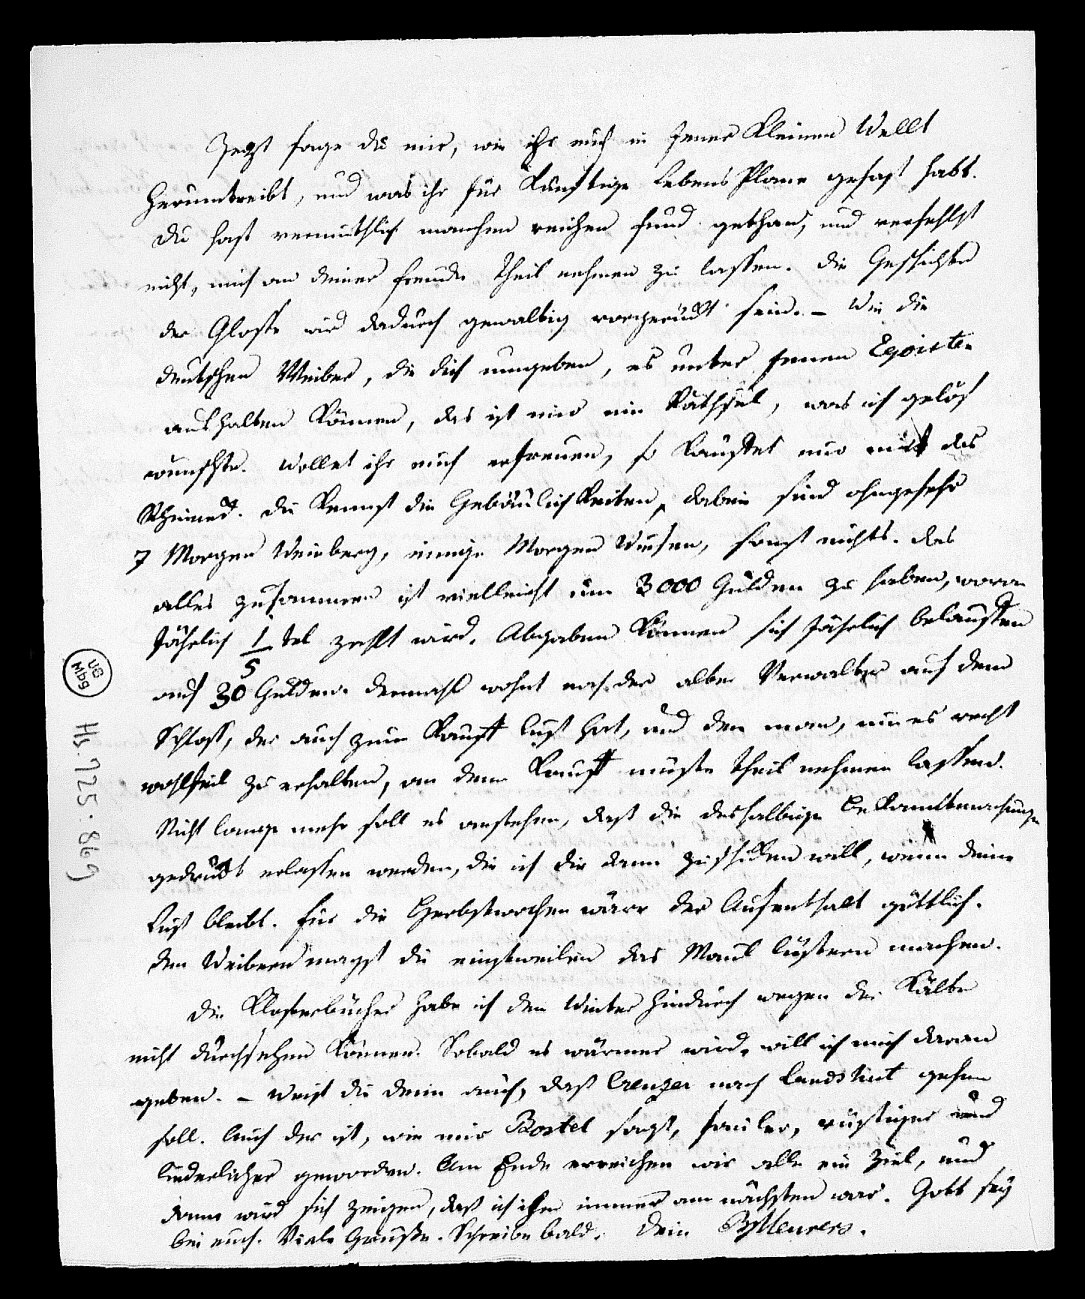 Jezt sage du mir, wie ihr euch in Jener Kleinen Wellt
herumtreibt, und was ihr für Künftige Lebens Plane gefast habt.
Du hast vermuthlich manchen reichen fund gethan, und verfehlst
nicht, mich an deiner freude theil nehmen zu lassen. Die Geschichte
der Glosse wird dadurch gewaltig vorgerückt sein. – Wie die
deutschen Weiber, die dich umgeben, es unter Jenen Egoisten
aushalten Können, das ist mir ein Räthsel, was ich gelöst
wünschte. Wollet ihr euch erfreuen, so Kauftet nur das
Rheineck. Du Kennst die GebäulichKeiten, dabei sind ohngefehr
7 Morgen Weinberg, einige Morgen Wiesen, sonst nichts. Das
alles zusammen ist vielleicht um 3000 Gulden zu haben, woran
Jährlich 1/5 tel gezahlt wird. Abgaben Können sich Jährlich belauffen
auf 30 Gulden. Dermahl wohnt noch der alte Verwalter auf dem
Schloss, der auch zum Kauff lust hat, und den man, um es recht
wohlfeil zu erhalten, an dem Kauff müste theil nehmen lassen.
Nicht lange mehr soll es anstehen, dass die deshalbige beKanntmachunge
gedruckt erlassen werden, die ich dir dann zuschicken will, wenn deine
Lust bleibt. Für die Herbstwochen wäre der Aufenthalt göttlich.
Den Weibern magst du einstweilen das Maul lüstern machen.
Die Klosterbücher habe ich den Winter hindurch wegen der Kälte
nicht durchsehen Können. Sobald es wärmer wird, will ich mich daran
geben. – Weist du denn auch, dass Creuzer nach Landshut gehen
soll. Auch der ist, wie mir Bostel sagt, fauler, rüstiger und
liederlicher geworden. Am Ende erreichen wir alle ein Ziel, und
dann wird sich zeigen, dass ich ihm immer am nächsten war. Gott sey
bei euch. Viele Grüsse. Schreibe bald. Dein
UB
Mbg
Hs. 725:869